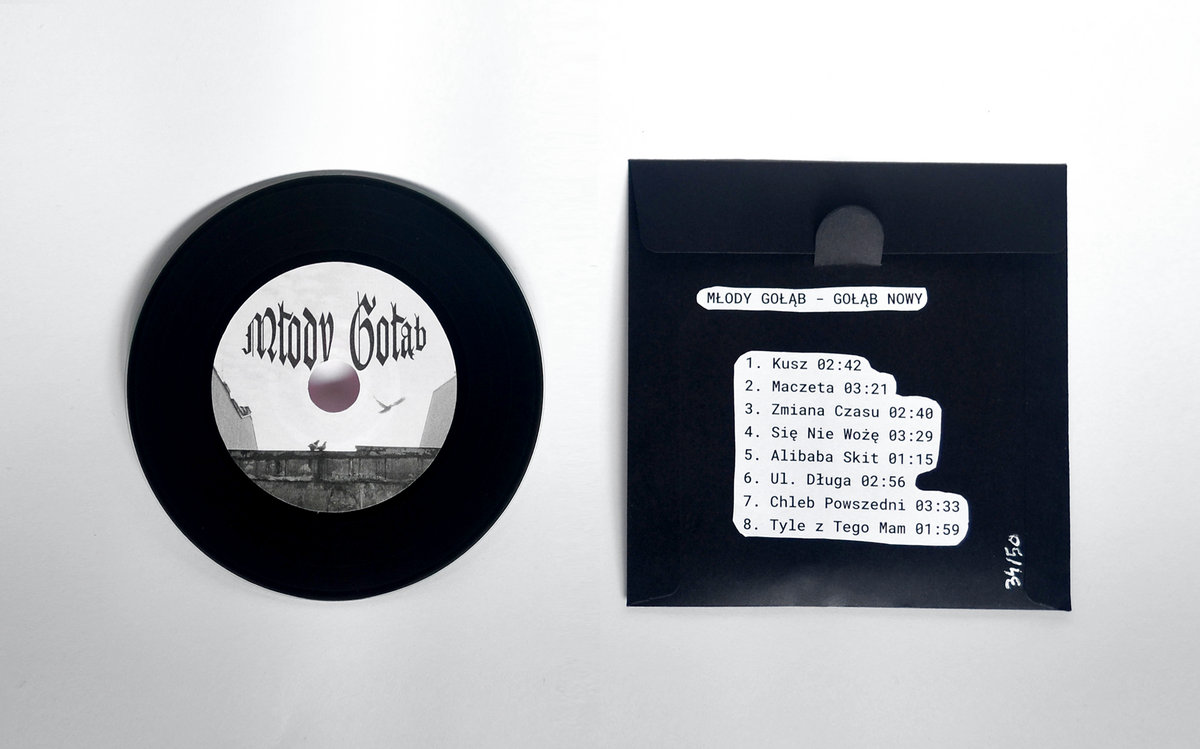 Młody Gołąb
MŁODY GOŁĄB - GOŁĄB NOWY
1. Kusz 02:42
2. Maczeta 03:21
3. Zmiana Czasu 02:40
4. Się Nie Wożę 03:29
5. Alibaba Skit 01:15
6. Ul. Długa 02:56
7. Chleb Powszedni 03:33
8. Tyle z Tego Mam 01:59
34/50